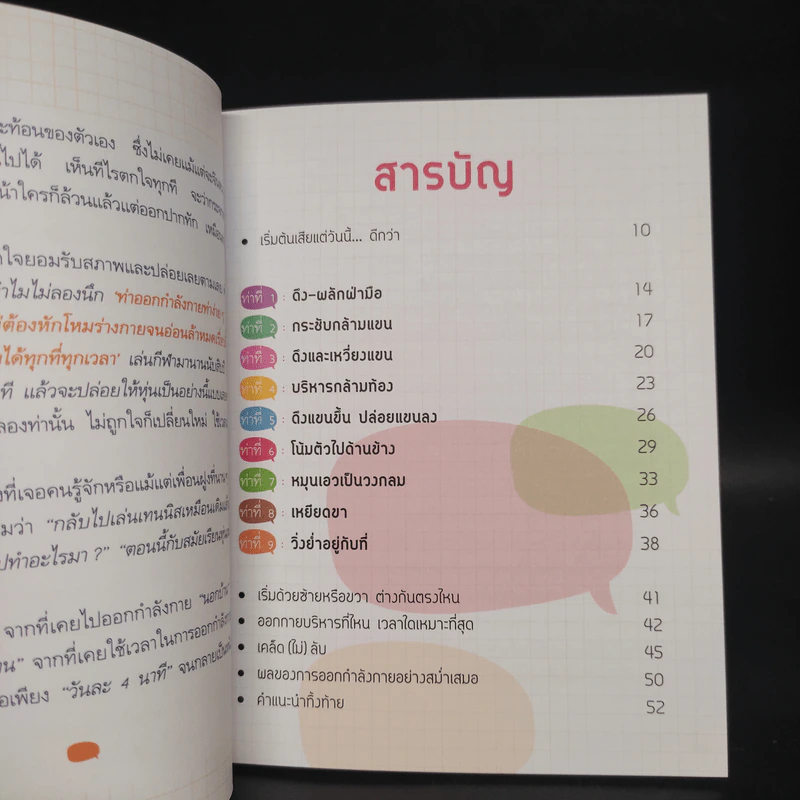 ะท้อนของตัวเอง ซึ่งไม่เคยแม้แต่จะ
ไปได้ เห็นทีไรตกใจทุกที
น้าใครก็ล้วนแล้วแต่ออกปากทัก
ใจยอมรับสภาพและปล่อยเลยตามเลย
ทำไมไม่ลองนึก 'ท่าออกกำลังกายทำง่าย ๆ
ต้องหักโหมร่างกายจนอ่อนล้าหมดเรี่ยว
ได้ทุกที่ทุกเวลา' เล่นกีฬามานานนับสิบปี
ที แล้วจะปล่อยให้หุ่นเป็นอย่างนี้
ลองท่านั้น ไม่ถูกใจก็เปลี่ยนใหม่
ที่เจอคนรู้จักหรือแม้แต่เพื่อนฝูงที่นาน ๆ
มว่า "กลับไปเล่นเทนนิสเหมือนเดิม
ปทำอะไรมา ?" "ตอนนี้กับสมัยเรียน
จากที่เคยไปออกกำลังกาย "นอกบ้าน"
น" จากที่เคยใช้เวลาในการออกกำลัง
อเพียง "วันละ 4 นาที" จนกลายเป็น
สารบัญ
• เริ่มต้นเสียแต่วันนี้... ดีกว่า 10
ท่าที่ 1 : ดึง-ผลักฝ่ามือ 14
ท่าที่ 2 : กระชับกล้ามแขน 17
ท่าที่ 3 : ดึงและเหวี่ยงแขน 20
ท่าที่ 4 : บริหารกล้ามท้อง 23
ท่าที่ 5 : ดึงแขนขึ้น ปล่อยแขนลง 26
ท่าที่ 6 : โน้มตัวไปด้านข้าง 29
ท่าที่ 7 : หมุนเอวเป็นวงกลม 33
ท่าที่ 8 : เหยียดขา 36
ท่าที่ 9 : วิ่งย่ำอยู่กับที่ 38
• เริ่มด้วยซ้ายหรือขวา ต่างกันตรงไหน 41
• ออกกายบริหารที่ไหน เวลาใดเหมาะที่สุด 42
• เคล็ด (ไม่) ลับ 45
• ผลของการออกกำลังกายอย่างสม่ำเสมอ 50
• คำแนะนำทิ้งท้าย 52